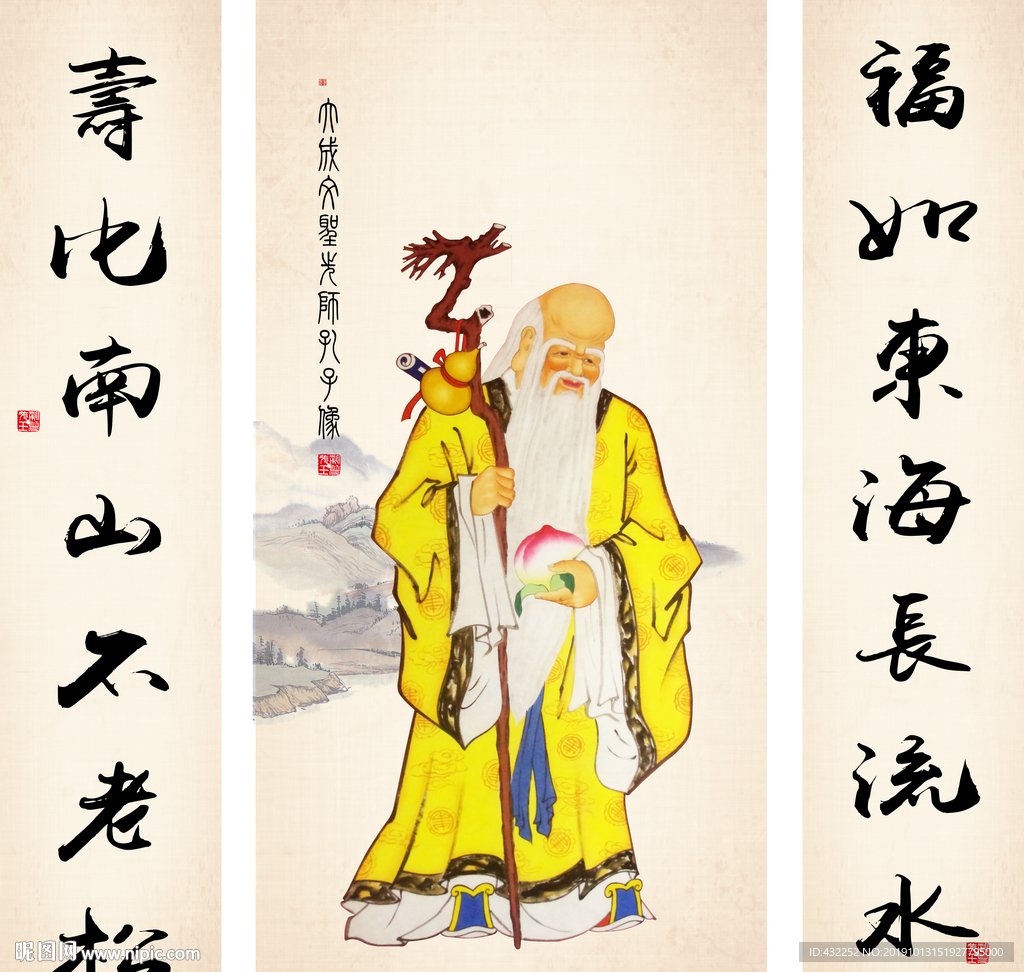 福如東海長流水
大成文聖先師孔子像
壽比南山不老松
昵图网 www.nipic.com
ID:432252 NO:20191013151927795000